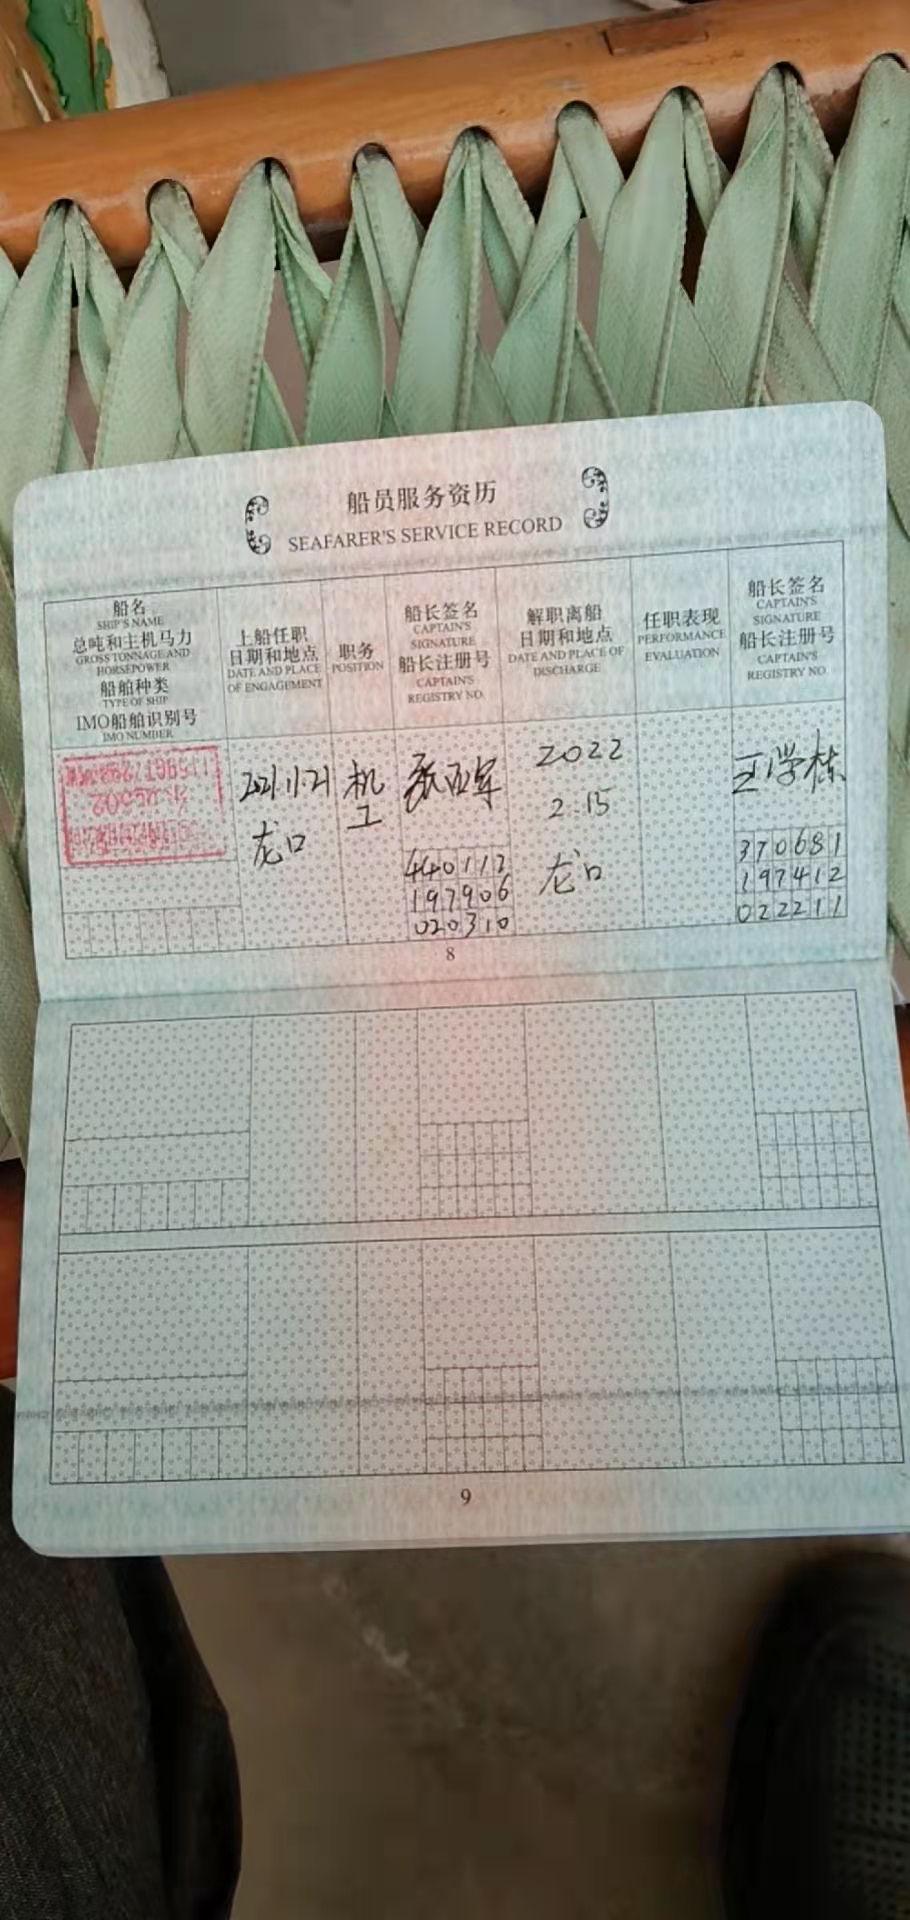 船员服务资历
SEAFARER'S SERVICE RECORD
船名
SHIP'S NAME
总吨和主机马力
GROSS TONNAGE AND
HORSEPOWER
船舶种类
TYPE OF SHIP
IMO船舶识别号
IMO NUMBER
上船任职
日期和地点
DATE AND PLACE
OF ENGAGEMENT
职务
POSITION
船长签名
CAPTAIN'S
SIGNATURE
船长注册号
CAPTAIN'S
REGISTRY NO.
解职离船
日期和地点
DATE AND PLACE OF
DISCHARGE
任职表现
PERFORMANCE
EVALUATION
船长签名
CAPTAIN'S
SIGNATURE
船长注册号
CAPTAIN'S
REGISTRY NO.
2021.11.21
龙口
机
工
张西军
440112
197906
020310
2022
2.15
龙口
王学栋
370681
197412
022211
8
9